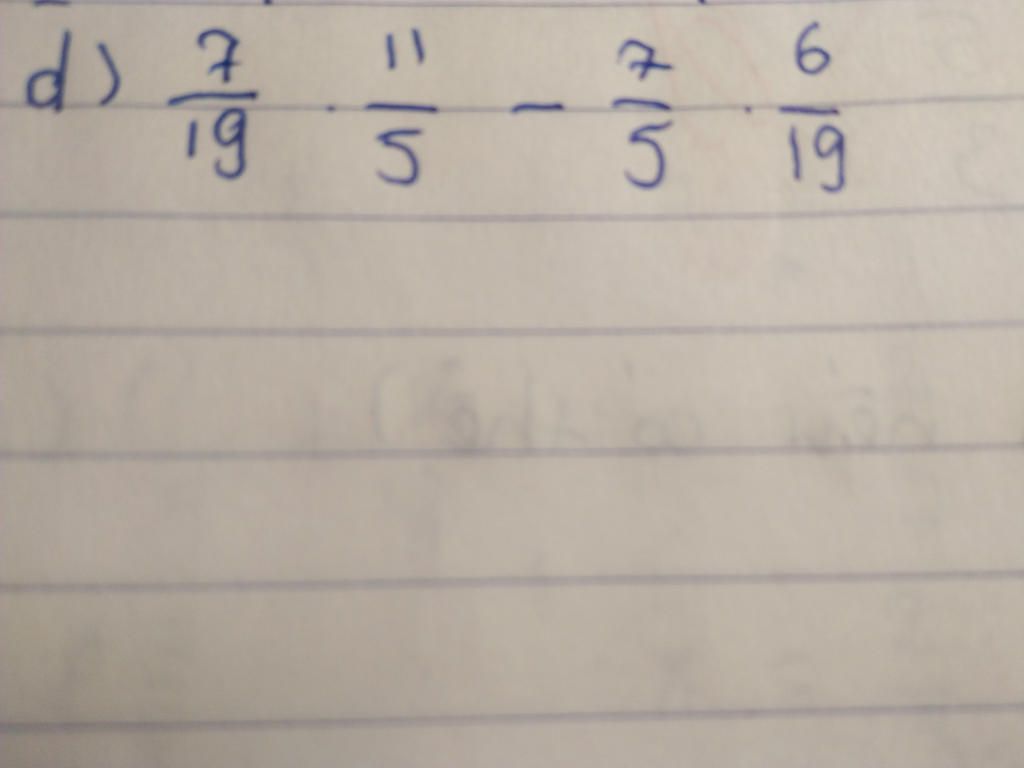 d) 7/19 . 11/5 - 7/5 . 6/19